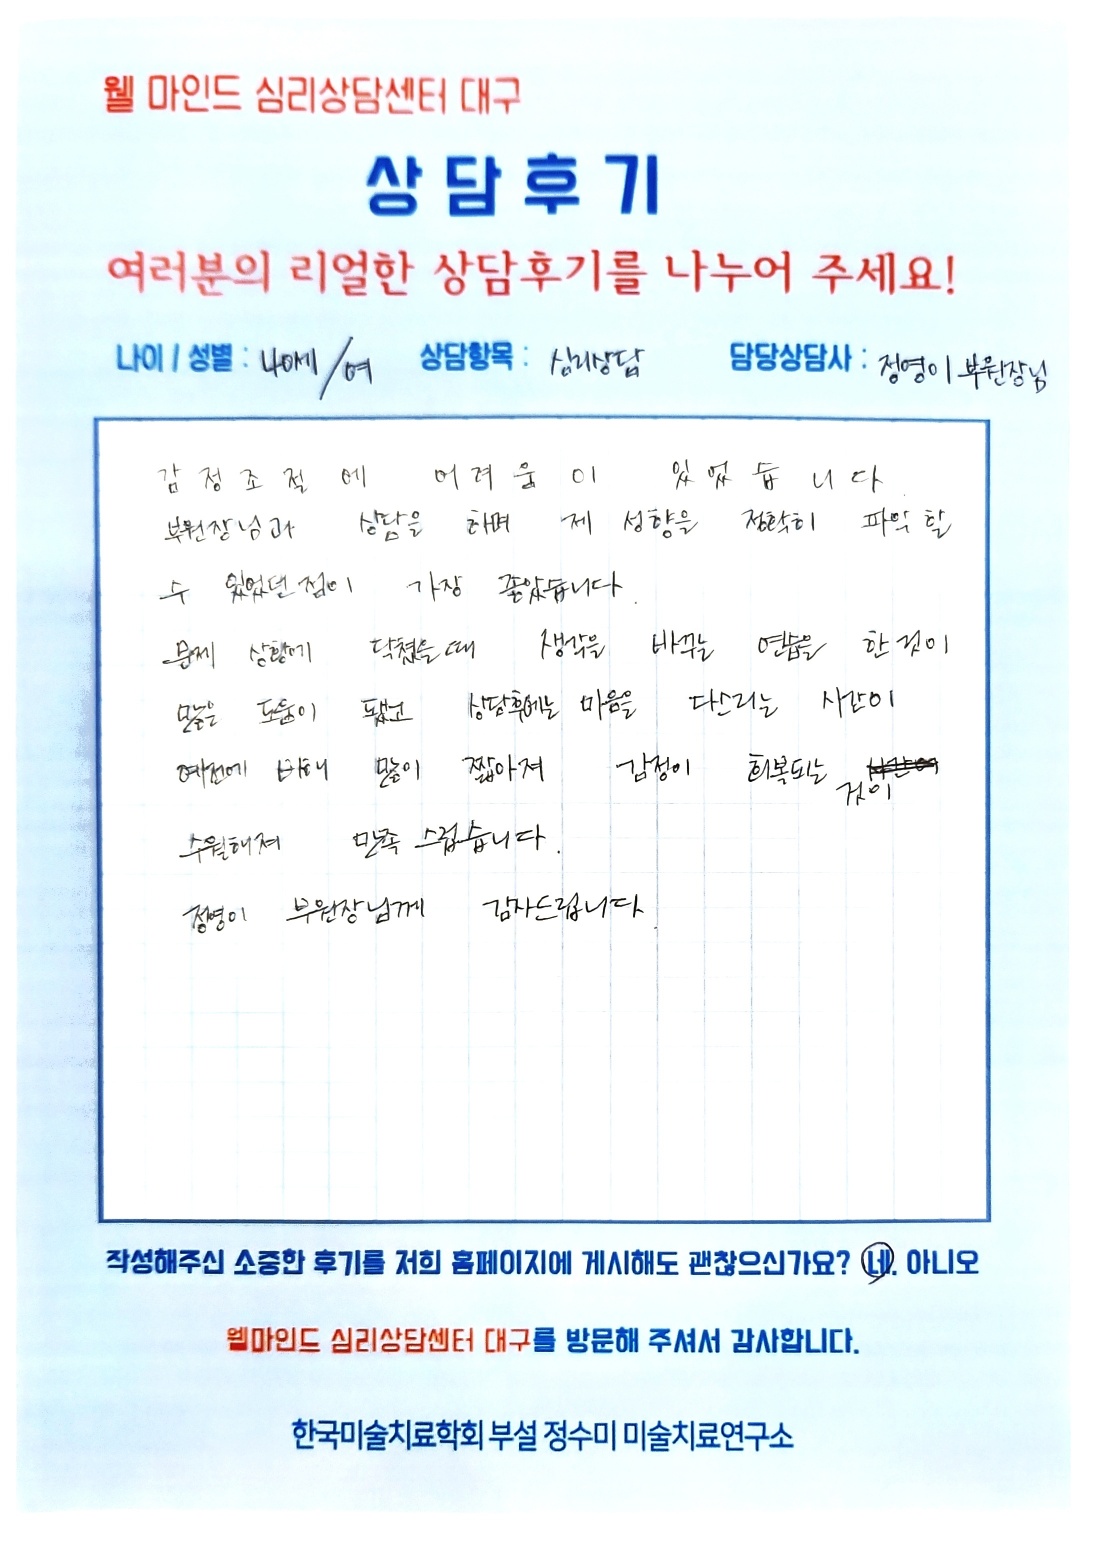 웰 마인드 심리상담센터 대구
상담후기
여러분의 리얼한 상담후기를 나누어 주세요!
나이 / 성별 : 40세 / 여 상담항목 : 심리상담 담당상담사 : 정영이 부원장님
감정조절에 어려움이 있었습니다.
부원장님과 상담을 하며 제 성향을 정확히 파악 할
수 있었던 점이 가장 좋았습니다.
문제 상황에 닥쳤을 때 생각을 바꾸는 연습을 한 것이
많은 도움이 됐고 상담후에는 마음을 다스리는 시간이
예전에 비해 많이 짧아져 감정이 회복되는
것이
수월해져 만족 스럽습니다.
정영이 부원장님께 감사드립니다.
작성해주신 소중한 후기를 저희 홈페이지에 게시해도 괜찮으신가요? 네. 아니오
웰마인드 심리상담센터 대구를 방문해 주셔서 감사합니다.
한국미술치료학회 부설 정수미 미술치료연구소